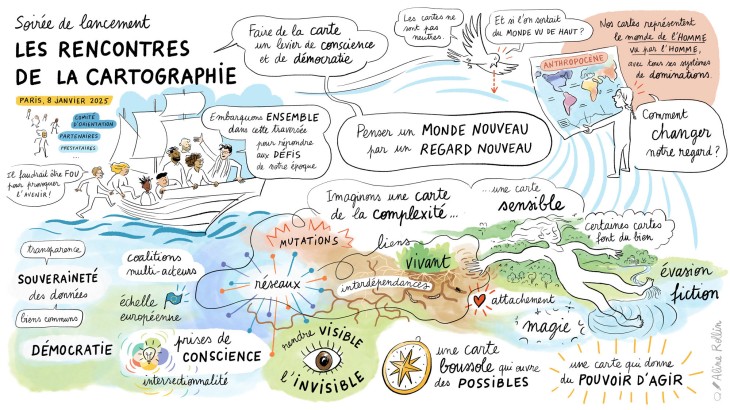 Soirée de lancement
LES RENCONTRES
DE LA CARTOGRAPHIE
PARIS, 8 JANVIER 2025
COMITÉ
D'ORIENTATION
PARTENAIRES
PRESTATAIRES
...
Il faudrait être FOU
pour provoquer
l'AVENIR !
Faire de la carte
un levier de conscience
et de démocratie
Embarquons ENSEMBLE
dans cette traversée
pour répondre
aux DÉFIS
de notre époque
Les cartes ne
sont pas
neutres.
Et si l'on sortait
du MONDE VU DE HAUT ?
Nos cartes représentent
le monde de l'HOMME
vu par l'HOMME,
avec tous ses systèmes
de dominations.
ANTHROPOCÈNE
Penser un MONDE NOUVEAU
par un REGARD NOUVEAU
Comment
changer
notre regard ?
Imaginons une carte
de la complexité...
...une carte
sensible
certaines cartes
font du bien
transparence
SOUVERAINETÉ
des données
biens communs
DÉMOCRATIE
coalitions
multi-acteurs
échelle
européenne
prises de
CONSCIENCE
intersectionnalité
MUTATIONS
réseaux
liens
vivant
interdépendances
attachement
magie
évasion
fiction
rendre VISIBLE
l'INVISIBLE
une carte
boussole qui ouvre
des POSSIBLES
une carte qui donne
du POUVOIR D'AGIR
Aline Rollin